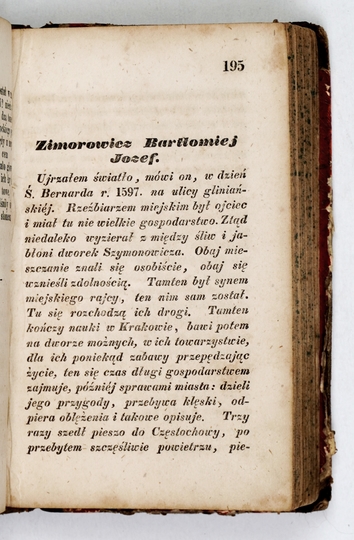 195
Zimorowicz Bartłomiej
Jozef.
Ujrzałem światło, mówi on, w dzień
Ś. Bernarda r. 1597. na ulicy gliniań-
skiéj. Rzeźbiarzem miejskim był ojciec
i miał tu nie wielkie gospodarstwo. Ztąd
niedaleko wyzierał z między śliw i ja-
błoni dworek Szymonowicza. Obaj mie-
szczanie znali się osobiście, obaj się
wznieśli zdolnością. Tamten był synem
miejskiego rajcy, ten nim sam został.
Tu się rozchodzą ich drogi. Tamten
kończy nauki w Krakowie, bawi potem
na dworze możnych, w ich towarzystwie,
dla ich poniekąd zabawy przepędzając
życie, ten się czas długi gospodarstwem
zajmuje, późniéj sprawami miasta: dzieli
jego przygody, przebywa klęski, od-
piera oblężenia i takowe opisuje. Trzy
razy szedł pieszo do Częstochowy, po
przebytem szczęśliwie powietrzu, pie-